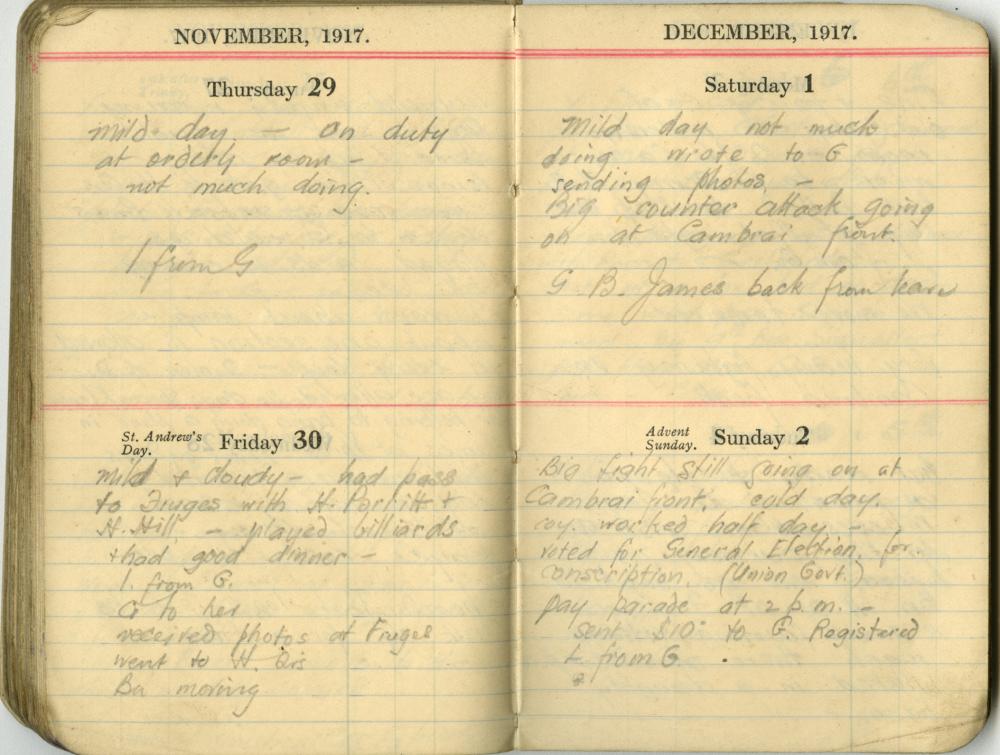 NOVEMBER, 1917.
Thursday 29
mild day — on duty
at orderly room —
not much doing.
1 from G
St. Andrew's
Day.
Friday 30
mild & cloudy — had pass
to Fruges with H. Porritt &
H. Hill — played billiards
& had good dinner —
1. from G.
to her
received photos at Fruges
went to H.
Bn moving
DECEMBER, 1917.
Saturday 1
Mild day not much
doing wrote to G
sending photos, —
Big counter attack going
on at Cambrai front.
G. B. James back from leave
Advent
Sunday.
Sunday 2
Big fight still going on at
Cambrai front. cold day.
coy. worked half day —
voted for General Election, for
conscription. (Union Govt.)
pay parade at 2 p.m. —
sent $10 to G. Registered
L from G.